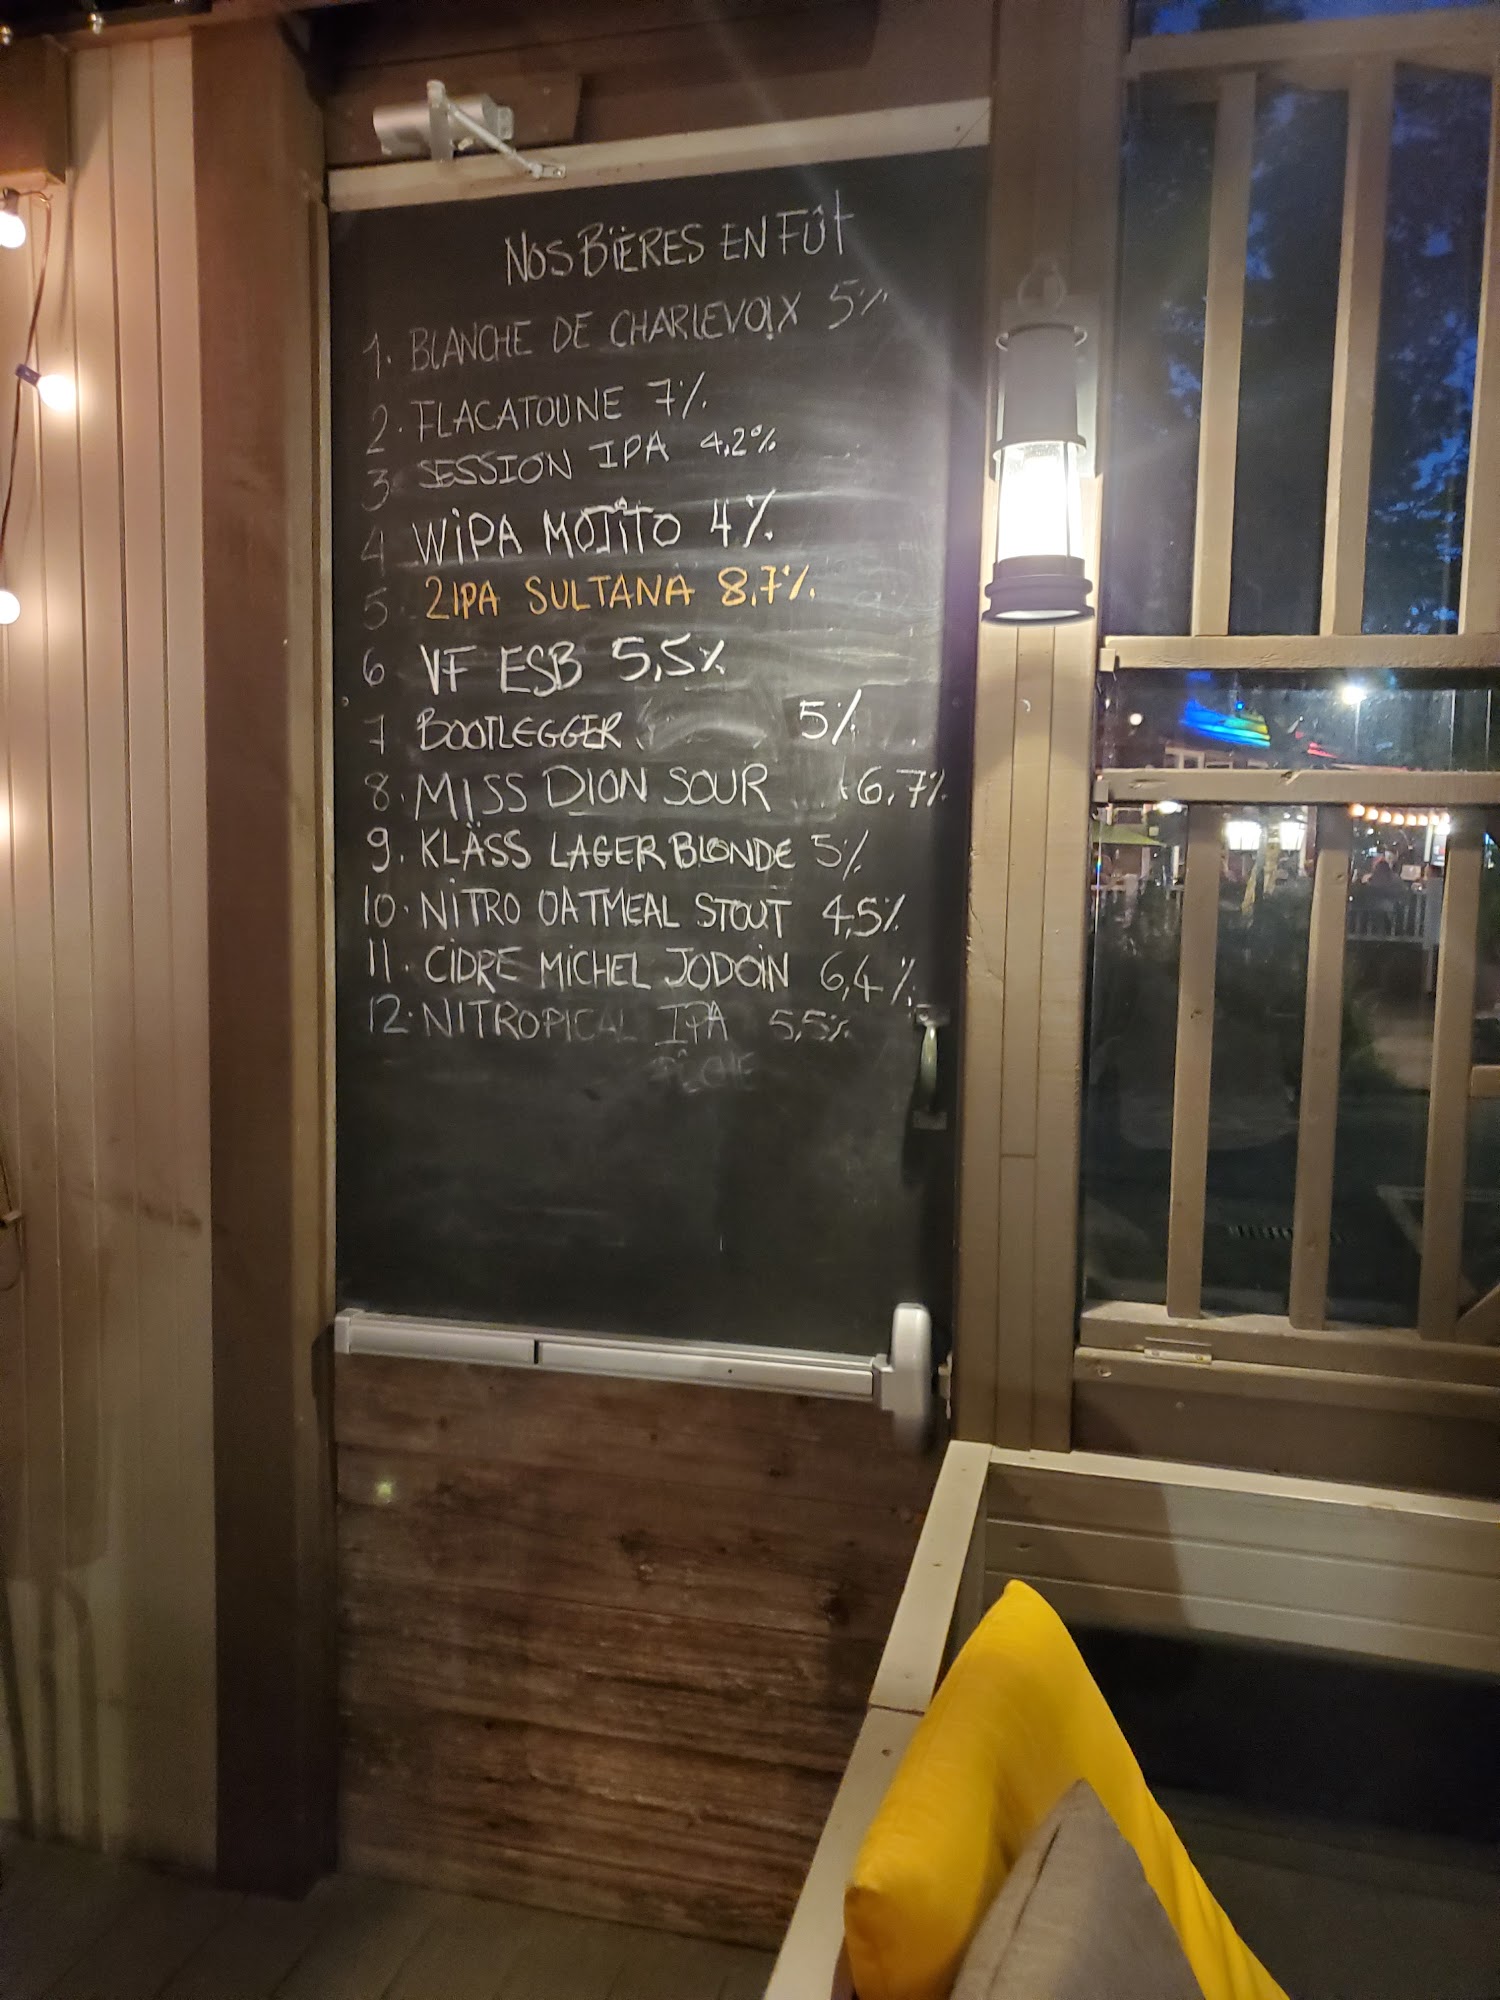 NOS BIÈRES EN FÛT
1. BLANCHE DE CHARLEVOIX 5%
2. FLACATOUNE 7%
3 SESSION IPA 4,2%
4 WIPA MOJITO 4%
5 2IPA SULTANA 8,7%
6 VF ESB 5,5%
7 BOOTLEGGER 5%
8. MISS DION SOUR 6,7%
9. KLÄSS LAGER BLONDE 5%
10. NITRO OATMEAL STOUT 4,5%
11. CIDRE MICHEL JODOIN 6,4%
12. NITROPICAL IPA 5,5%
PÊCHE